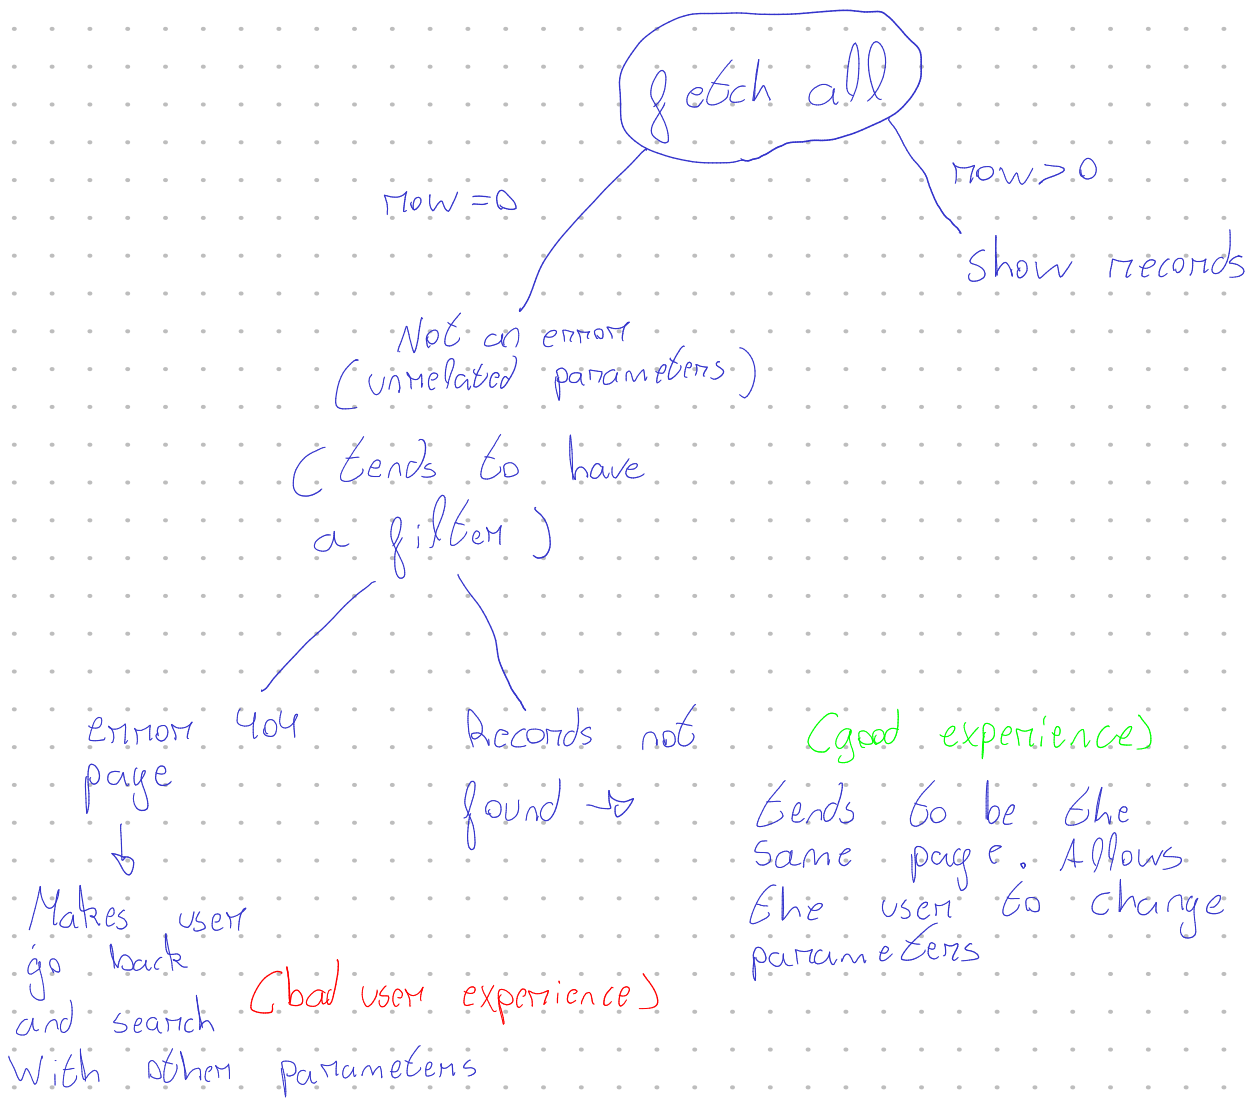 fetch all
row = 0
row > 0
Show records
Not an error
(unrelated parameters)
(tends to have
a filter)
error 404
page
Makes user
go back
and search
With other parameters
(bad user experience)
Records not
found →
(good experience)
tends to be the
same page. Allows
the user to change
parameters